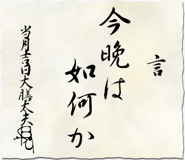 言
今晩は
如何か
当月吉日大膳太夫